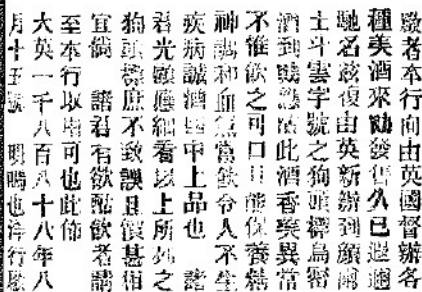 啟者本行向由英國督辦各
種美酒來 發售久已遐邇
馳名茲復由英新辦到顏
士斗雲字號之狗頭嘜烏
酒到 此酒香味異常
不惟飲之可口且能保養精
神調和血氣當飲令人不生
疾病誠酒 中上品也 諸
君光顧 細看以上所列之
狗頭 庶不致誤且價甚相
宜倘 諸君有欲 飲者請
至本行取 可也此佈
大英一千八百八十八年八
月十五號 明 也洋行